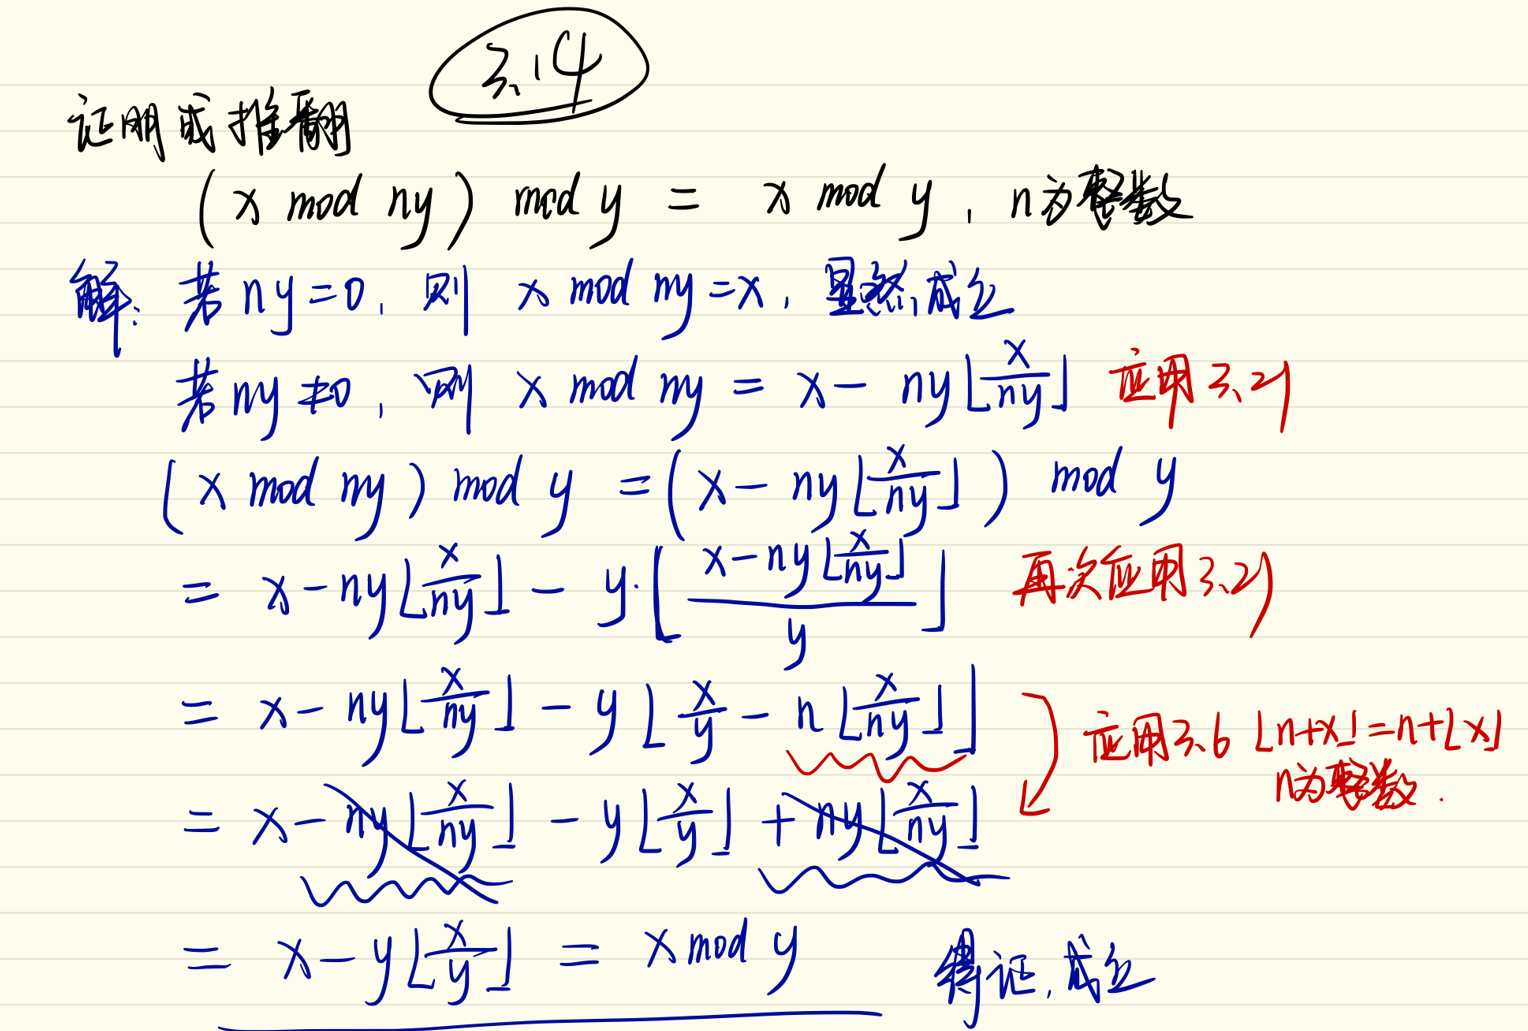 3.14
证明或推翻
(x mod ny) mod y = x mod y, n为整数
解: 若 ny=0, 则 x mod ny=x, 显然成立
若 ny≠0, 则 x mod ny = x - ny⌊x/ny⌋ 应用3.21
(x mod ny) mod y = (x - ny⌊x/ny⌋) mod y
= x - ny⌊x/ny⌋ - y·⌊(x-ny⌊x/ny⌋)/y⌋ 再次应用3.21
= x - ny⌊x/ny⌋ - y⌊x/y - n⌊x/ny⌋⌋ 应用3.6 ⌊n+x⌋=n+⌊x⌋
n为整数.
= x - ny⌊x/ny⌋ - y⌊x/y⌋ + ny⌊x/ny⌋
= x - y⌊x/y⌋ = x mod y 得证, 成立